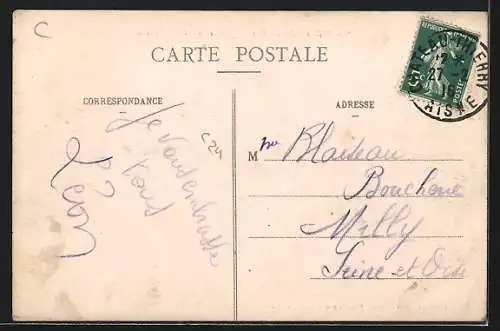 C
CARTE POSTALE
CORRESPONDANCE
ADRESSE
Je vous embrasse
tous
Léon
C24
Mme Blaiteau
Boucherie
Milly
Seine et Oise
CHATEAU-THIERRY
AISNE
17
27
5c
POSTES